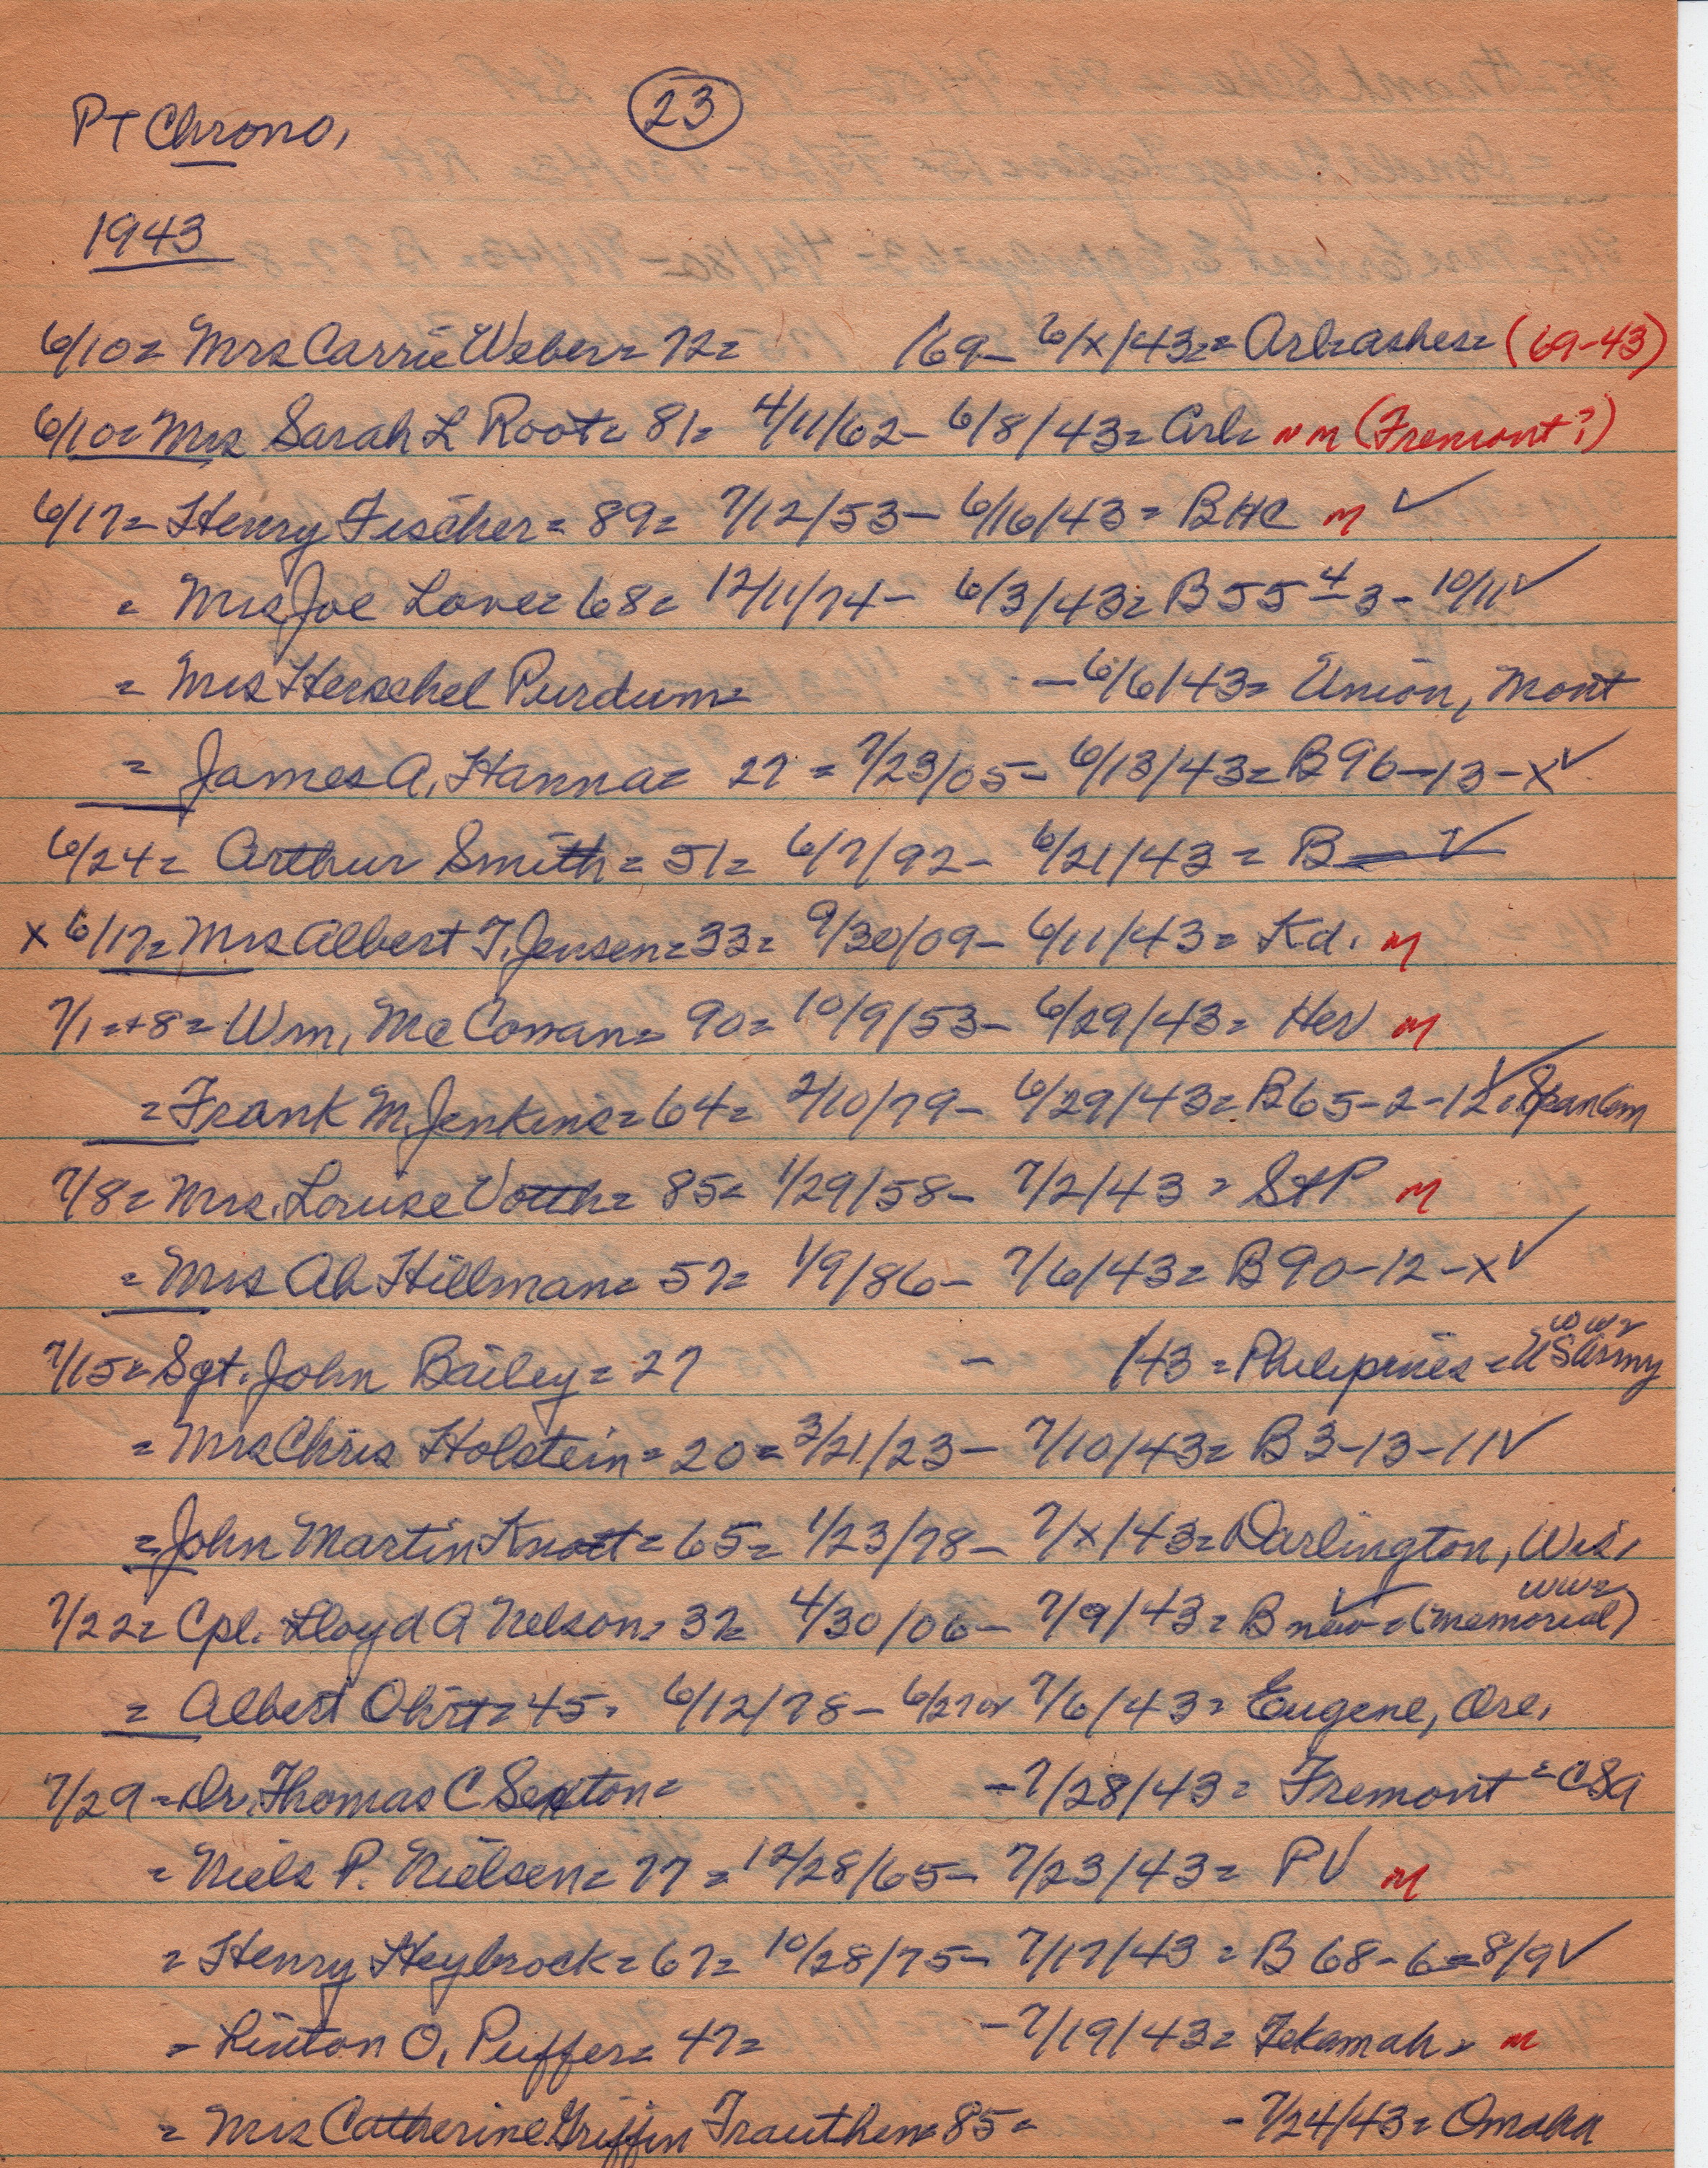 PT Chrono, (23)
1943
6/10= Mrs Carrie Weber= 72= /69- 6/x/43== Arl=ashes= (69-43)
6/10= Mrs Sarah L Root= 81= 4/11/62- 6/8/43= Arl= nm (Fremont?)
6/17= Henry Fischer= 89= 7/12/53- 6/16/43= BHC m ✓
= Mrs Joe Love= 68= 12/11/74- 6/3/43= B55 4 3- 10/11✓
= Mrs Herschel Purdum= -6/6/43= Union, Mont
= James A, Hanna= 27 = 7/23/05- 6/13/43= B96-13-x✓
6/24= Arthur Smith= 51= 6/7/92- 6/21/43= B ✓
x 6/17= Mrs Albert T. Jensen=33= 9/30/09- 6/11/43= Kd. m
7/1=+8= Wm, McCowan= 90= 10/9/53- 6/29/43= Her m
= Frank M. Jenkins=64= 2/10/79- 6/29/43= B65-2-12✓
7/8= Mrs. Louise Voth= 85= 1/29/58- 7/2/43= StP m
= Mrs Ab Hillman= 57= 1/9/86- 7/6/43= B90-12-x✓
7/15= Sgt. John Bailey= 27 - /43= Philipines= US Army WW2
= Mrs Chris Holstein= 20= 3/21/23- 7/10/43= B3-13-11✓
= John Martin Knott= 65= 1/23/78- 7/x/43= Darlington, Wis,
7/22= Cpl. Lloyd A Nelson= 37= 4/30/06- 7/9/43= B new✓=(memorial) WW2
= Albert Ohrt= 45= 6/12/78- 6/27 or 7/6/43= Eugene, Ore,
7/29= Dr. Thomas C Sexton= -7/28/43= Fremont =
= Niels P. Nielsen= 77= 12/28/65- 7/23/43= PV m
= Henry Heybrock= 67= 10/28/75- 7/17/43= B 68-6=8/9✓
= Linton O, Puffer= 47= -7/19/43= Tekamah= m
= Mrs Catherine Griffin Trauthen= 85= -7/24/43= Omaha